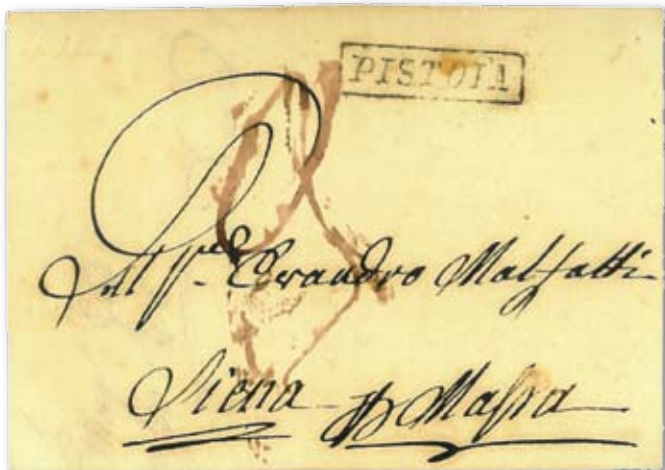 PISTOIA
Evandro Malfatti
Siena p Massa